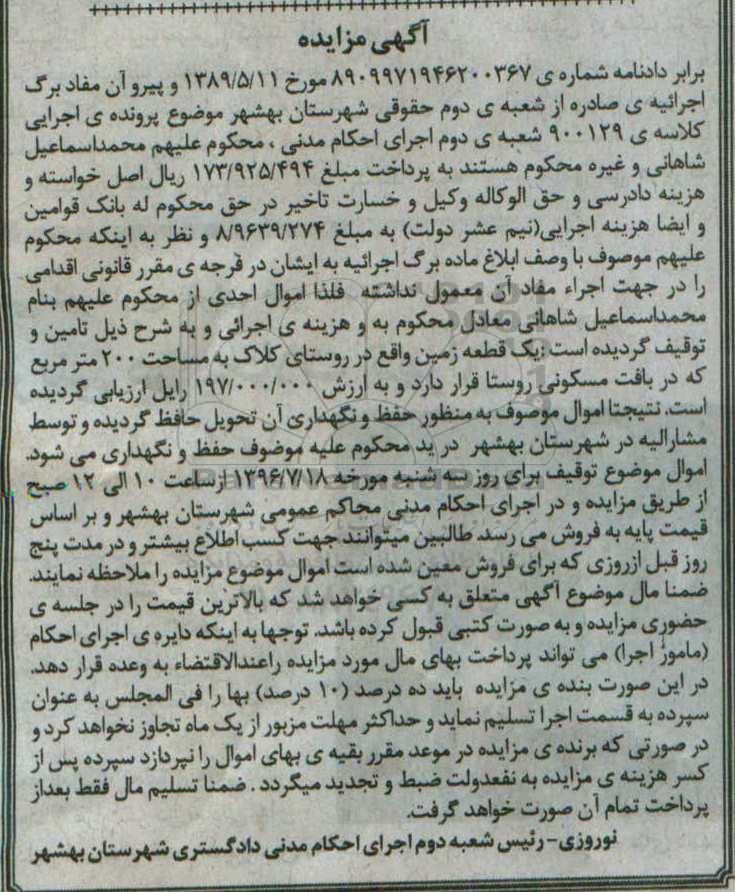 آگهی مزایده
برابر دادنامه شماره ی ۸۹۰۹۹۷۱۹۴۶۲۰۰۳۶۷ مورخ ۱۳۸۹/۵/۱۱ و پیرو آن مفاد برگ
اجرائیه ی صادره از شعبه ی دوم حقوقی شهرستان بهشهر موضوع پرونده ی اجرایی
کلاسه ی ۹۰۰۱۲۹ شعبه ی دوم اجرای احکام مدنی ، محکوم علیهم محمداسماعیل
شاهانی و غیره محکوم هستند به پرداخت مبلغ ۱۷۳/۹۲۵/۴۹۴ ریال اصل خواسته و
هزینه دادرسی و حق الوکاله وکیل و خسارت تاخیر در حق محکوم له بانک قوامین
و ایضا هزینه اجرایی(نیم عشر دولت) به مبلغ ۸/۹۶۳۹/۲۷۴ و نظر به اینکه محکوم
علیهم موصوف با وصف ابلاغ ماده برگ اجرائیه به ایشان در فرجه ی مقرر قانونی اقدامی
را در جهت اجراء مفاد آن معمول نداشته فلذا اموال احدی از محکوم علیهم بنام
محمداسماعیل شاهانی معادل محکوم به و هزینه ی اجرائی و به شرح ذیل تامین و
توقیف گردیده است :یک قطعه زمین واقع در روستای کلاک به مساحت ۲۰۰ متر مربع
که در بافت مسکونی روستا قرار دارد و به ارزش ۱۹۷/۰۰۰/۰۰۰ رایل ارزیابی گردیده
است. نتیجتا اموال موصوف به منظور حفظ و نگهداری آن تحویل حافظ گردیده و توسط
مشارالیه در شهرستان بهشهر در ید محکوم علیه موضوف حفظ و نگهداری می شود.
اموال موضوع توقیف برای روز سه شنبه مورخه ۱۳۹۶/۷/۱۸ ازساعت ۱۰ الی ۱۲ صبح
از طریق مزایده و در اجرای احکام مدنی محاکم عمومی شهرستان بهشهر و بر اساس
قیمت پایه به فروش می رسد. طالبین میتوانند جهت کسب اطلاع بیشتر و در مدت پنج
روز قبل ازروزی که برای فروش معین شده است اموال موضوع مزایده را ملاحظه نمایند.
ضمنا مال موضوع آگهی متعلق به کسی خواهد شد که بالاترین قیمت را در جلسه ی
حضوری مزایده و به صورت کتبی قبول کرده باشد. توجها به اینکه دایره ی اجرای احکام
(مامور اجرا) می تواند پرداخت بهای مال مورد مزایده راعندالاقتضاء به وعده قرار دهد.
در این صورت بنده ی مزایده باید ده درصد (۱۰ درصد) بها را فی المجلس به عنوان
سپرده به قسمت اجرا تسلیم نماید و حداکثر مهلت مزبور از یک ماه تجاوز نخواهد کرد و
در صورتی که برنده ی مزایده در موعد مقرر بقیه ی بهای اموال را نپردازد سپرده پس از
کسر هزینه ی مزایده به نفعدولت ضبط و تجدید میگردد . ضمنا تسلیم مال فقط بعداز
پرداخت تمام آن صورت خواهد گرفت.
نوروزی- رئیس شعبه دوم اجرای احکام مدنی دادگستری شهرستان بهشهر